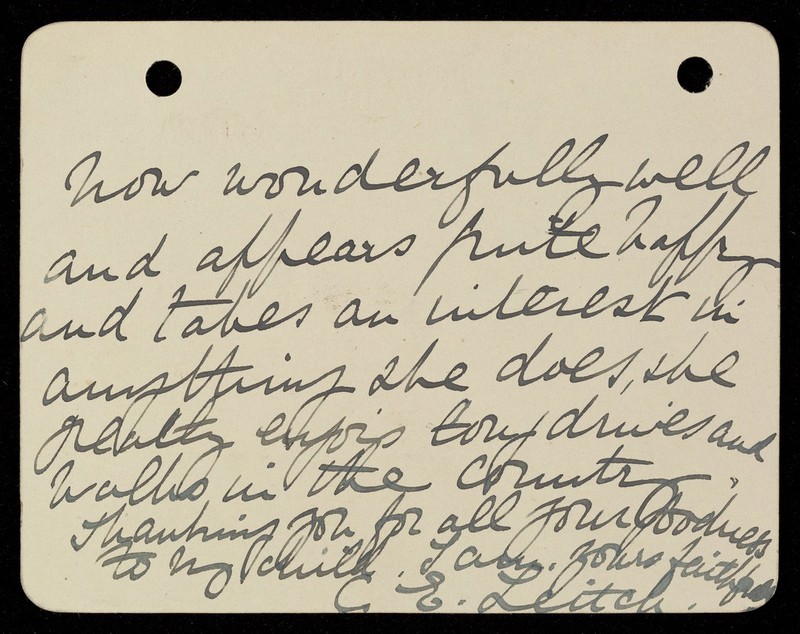 now wonderfully well
and appears quite happy
and takes an interest in
anything she does, she
greatly enjois long drives and
walks in the country.
Thanking you for all your Goodness
to my child. I am. yours faithfully
C E. Leitch.